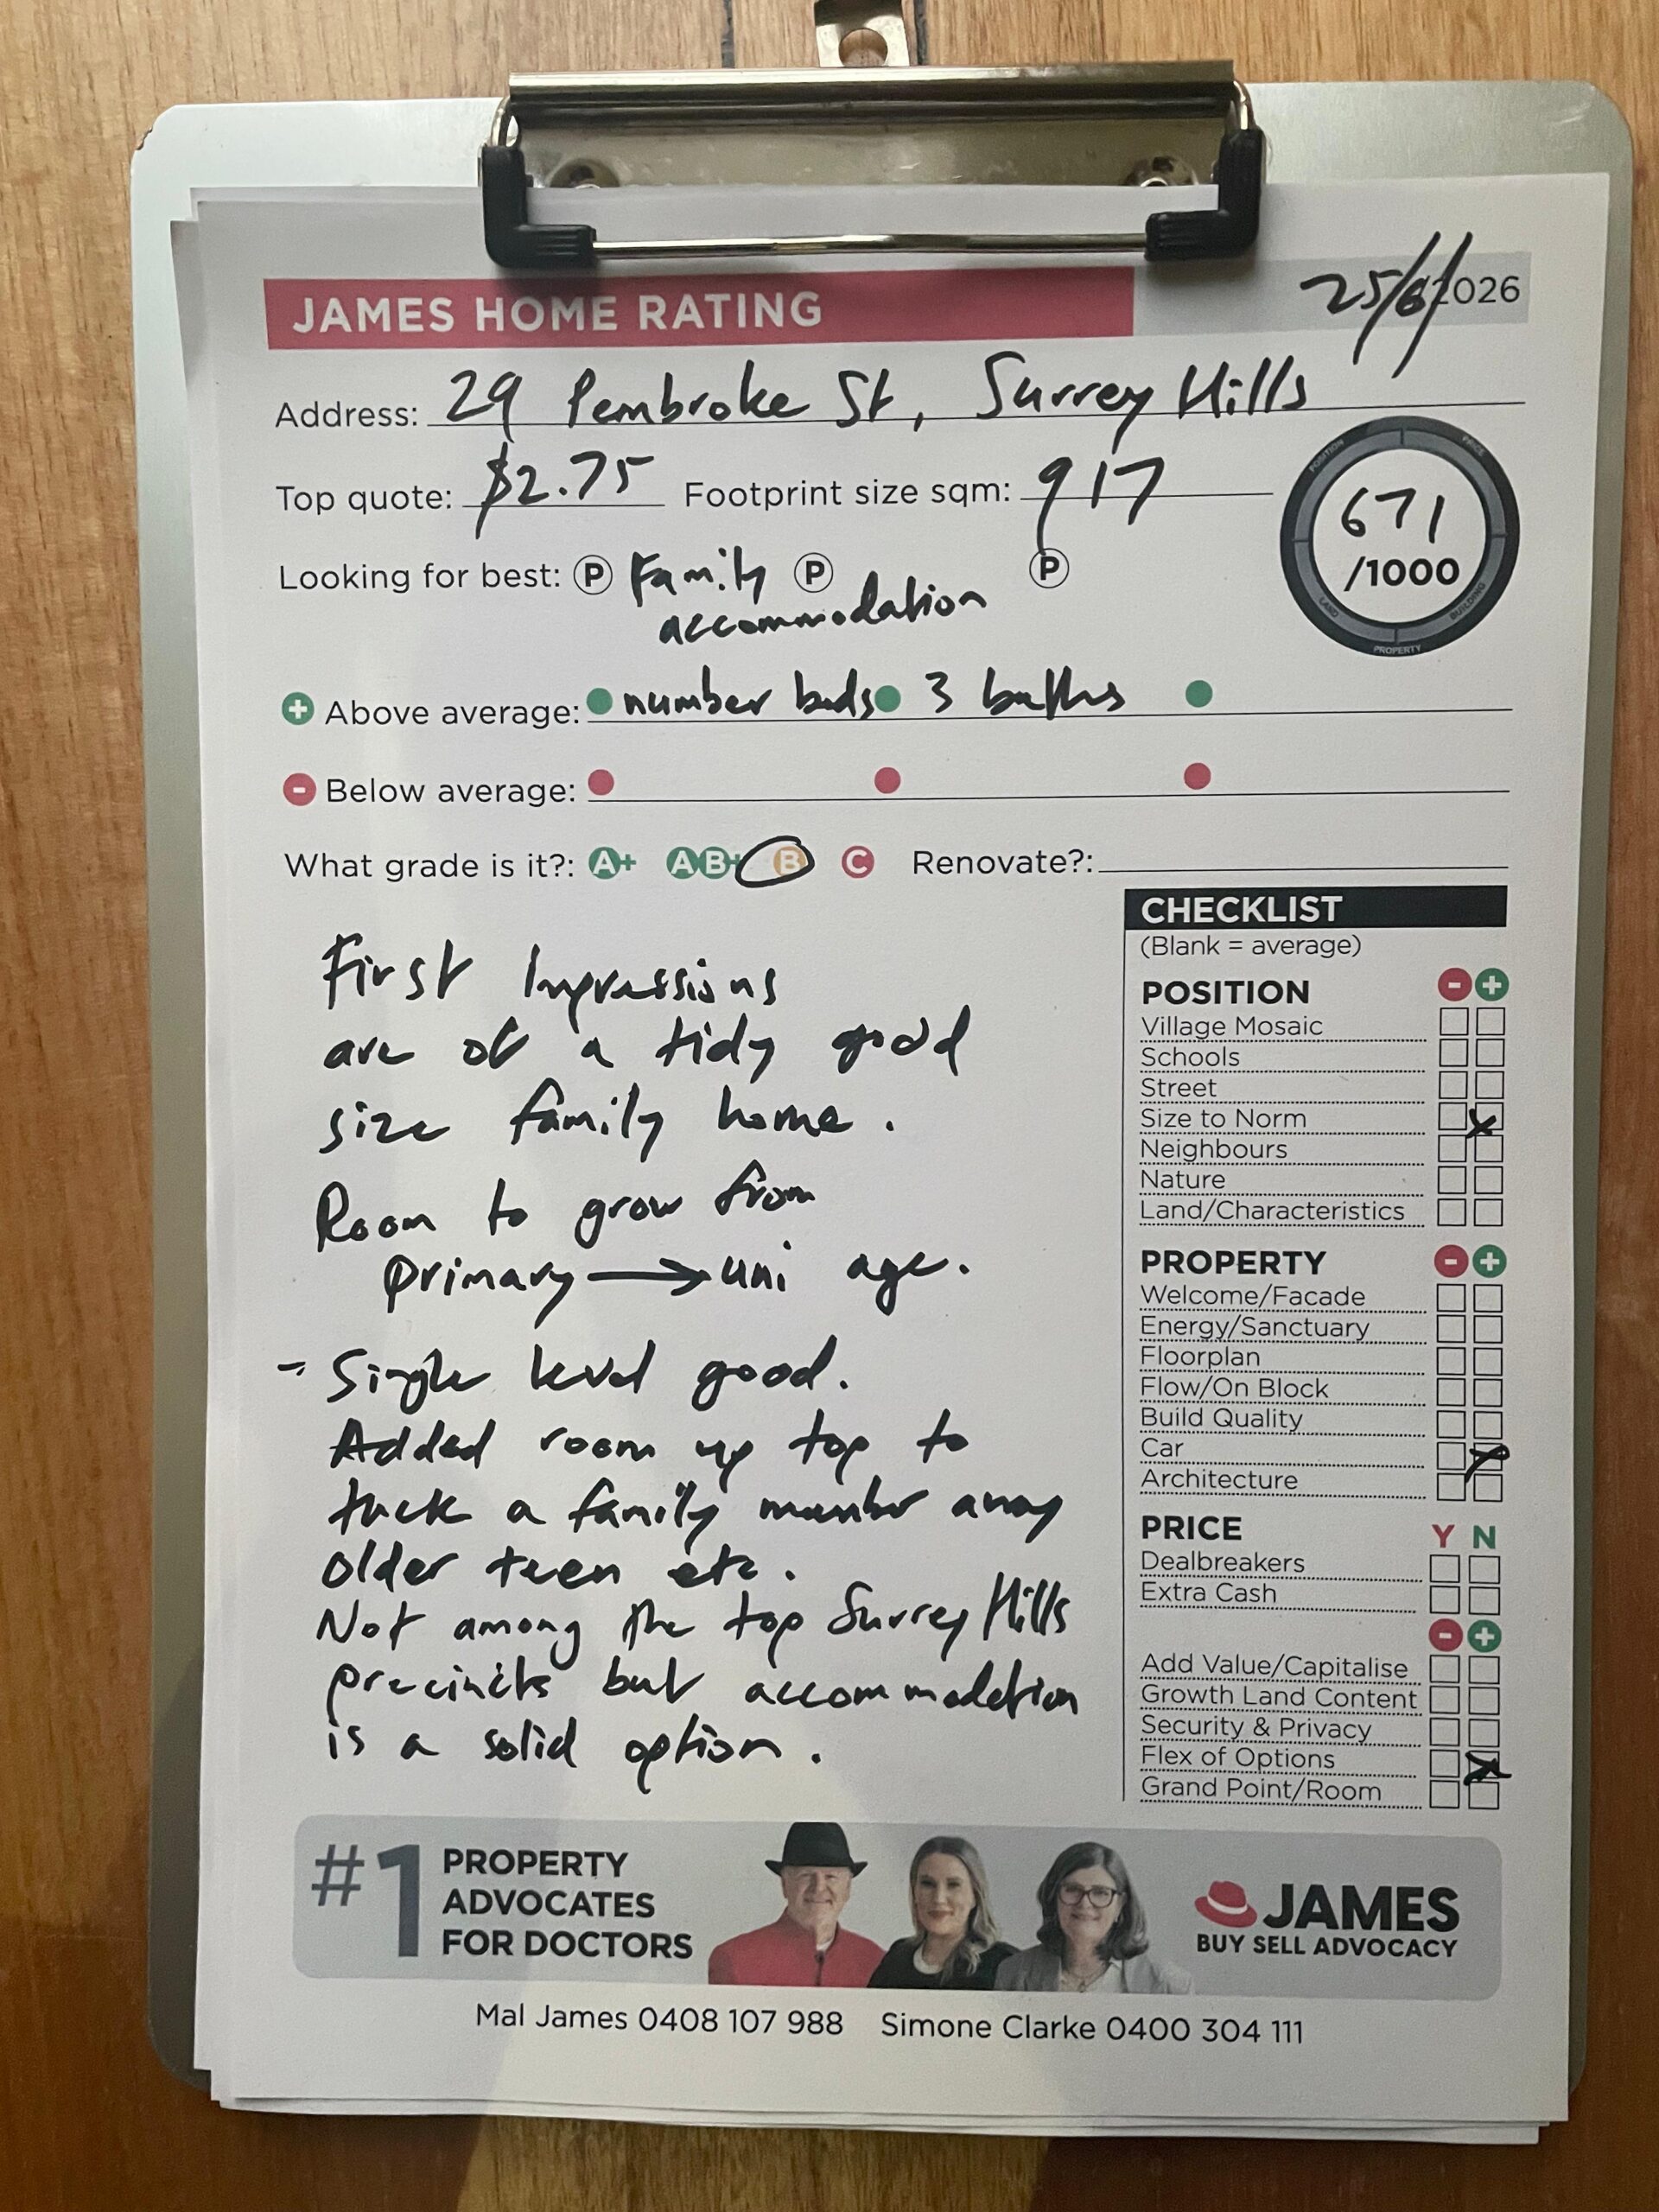 JAMES HOME RATING
25/6/2026
Address: 29 Pembroke St, Surrey Hills
Top quote: $2.75 Footprint size sqm: 917
POSITION PRICE BUILDING PROPERTY LAND
671
/1000
Looking for best: P Family P P
accommodation
+ Above average: number beds 3 baths
- Below average:
What grade is it?: A+ A B+ B C Renovate?:
First Impressions
are of a tidy good
size family home.
Room to grow from
primary → uni age.
- Single level good.
Added room up top to
tuck a family member away
older teen etc.
Not among the top Surrey Hills
precincts but accommodation
is a solid option.
CHECKLIST
(Blank = average)
POSITION - +
Village Mosaic
Schools
Street
Size to Norm x
Neighbours
Nature
Land/Characteristics
PROPERTY - +
Welcome/Facade
Energy/Sanctuary
Floorplan
Flow/On Block
Build Quality
Car x
Architecture
PRICE Y N
Dealbreakers
Extra Cash
- +
Add Value/Capitalise
Growth Land Content
Security & Privacy
Flex of Options x
Grand Point/Room
#1 PROPERTY
ADVOCATES
FOR DOCTORS
JAMES
BUY SELL ADVOCACY
Mal James 0408 107 988 Simone Clarke 0400 304 111